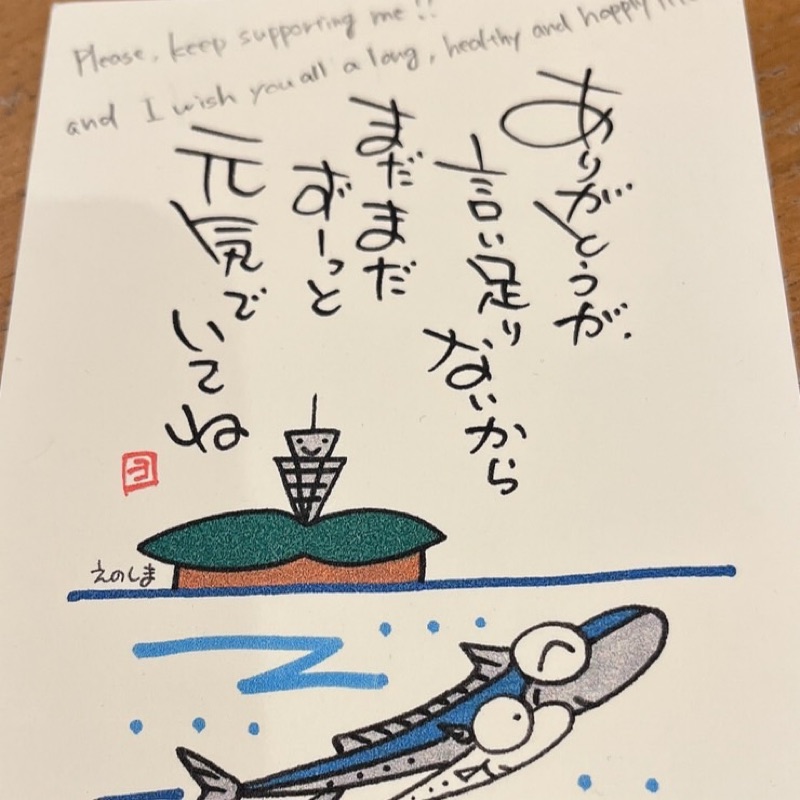 Please, keep supporting me!!
and I wish you all a long, healthy and happly
ありがとうが、
言い足りないから
まだまだ
ずーっと
元気で
いてね
ヨ
えのしま